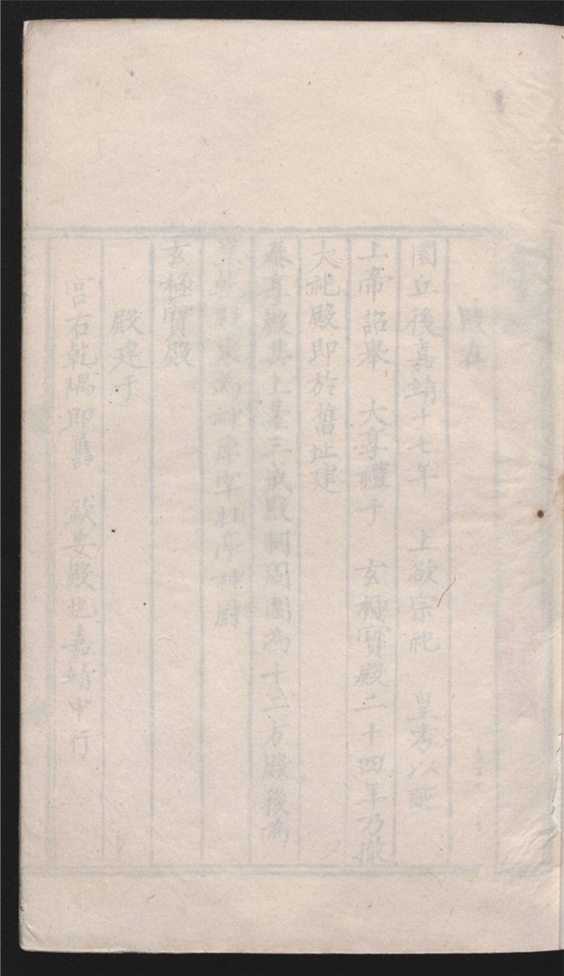 殿在
圜丘後嘉靖十七年 上欲宗祀 皇考以配
上帝詔舉 大享禮于 玄極寶殿二十四年乃撤
大祀殿即於舊址建
泰享殿其上基三成殿制周圍為十二方殿後為
神庫宰牲亭神廚
玄極寶殿
殿建于
宮右乾隅即舊 欽安殿也嘉靖中行